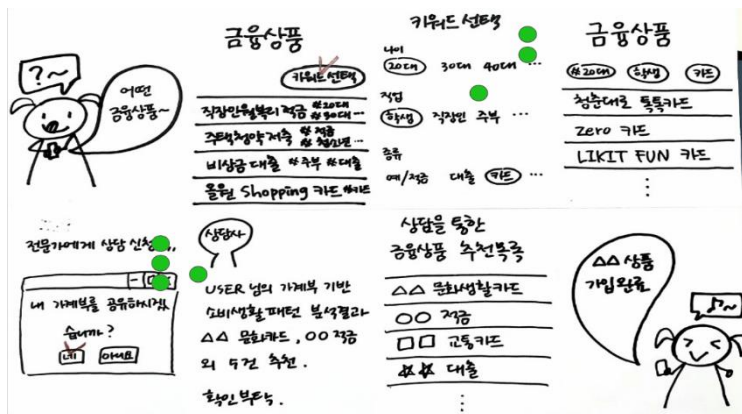 ?~
어떤
금융상품~
금융상품
키워드 선택
직장인월복리적금 #20대 #30대 ...
주택청약저축 #적금 #청소년 ...
비상금대출 #주부 #대출
올원 Shopping 카드 #카드
키워드 선택
나이
20대 30대 40대 ...
직업
학생 직장인 주부 ...
종류
예/적금 대출 카드 ...
금융상품
#20대 학생 카드
청춘대로 톡톡카드
zero 카드
LIKIT FUN 카드
⋮
전문가에게 상담 신청
내 가계부를 공유하시겠
습니까?
네 아니요
상담사
USER 님의 가계부 기반
소비생활패턴 분석결과
△△ 문화카드, ○○ 적금
외 5건 추천.
확인부탁.
상담을 통한
금융상품 추천목록
△△ 문화생활카드
○○ 적금
□□ 교통카드
☆☆ 대출
⋮
△△ 상품
가입완료
♪~